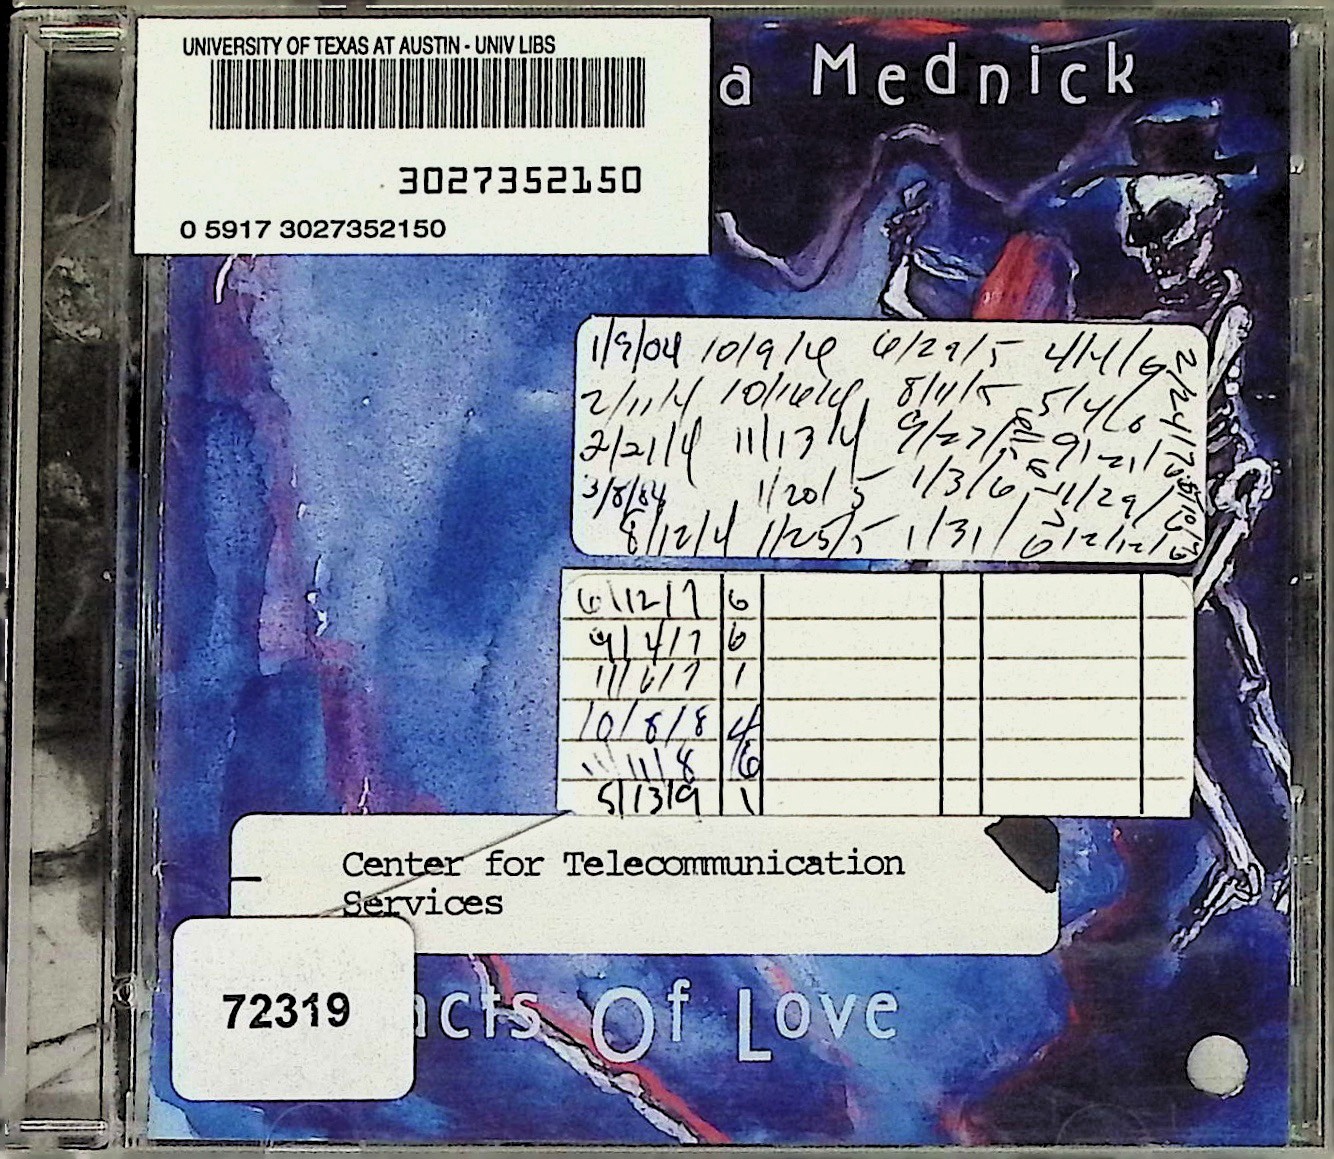 UNIVERSITY OF TEXAS AT AUSTIN - UNIV LIBS
a Mednick
3027352150
0 5917 3027352150
1/9/04 10/9/4 6/29/5 4/4/6 2/24/7
2/11/4 10/16/4 8/11/5 5/4/6
2/21/4 11/13/4 9/27/5 9/21/6
3/8/04 1/20/5 1/3/6 11/29/6
8/12/4 1/25/5 1/31/6 12/12/6
6/12/7 6
9/4/7 6
11/6/7 1
10/8/8 4
11/11/8 6
5/13/9 1
Center for Telecommunication
Services
72319
acts Of Love